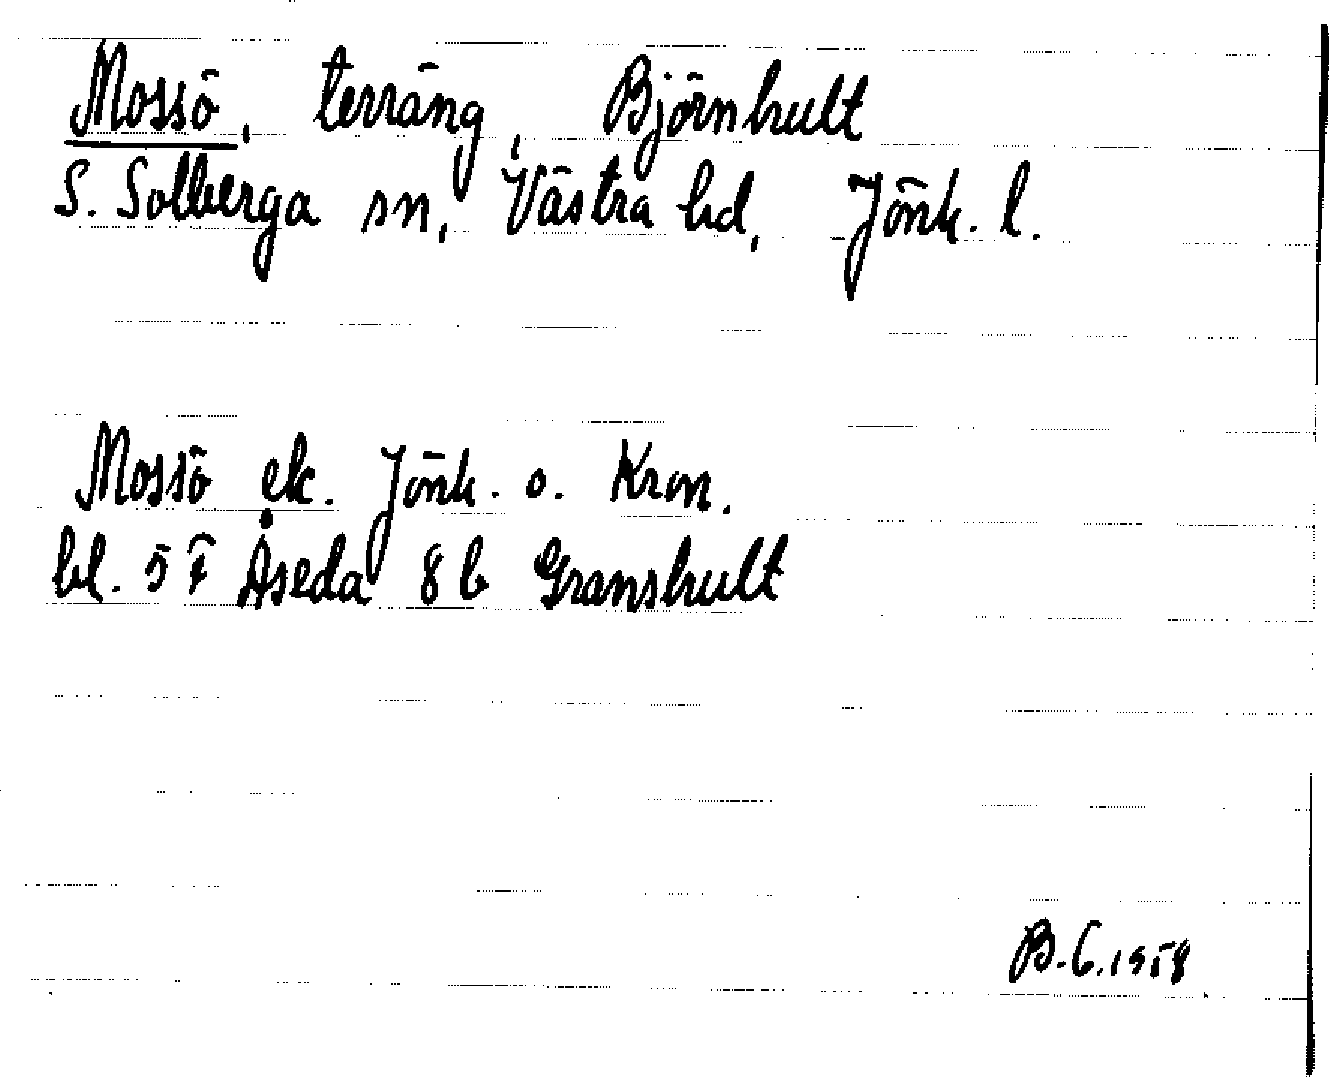 Mossö, terräng, Björnhult
S. Solberga sn, Västra hd, Jönk. l.
Mossö ek. Jönk. o. Kron.
bl. 5 F Åseda 8 b Granshult
B. G. 1958